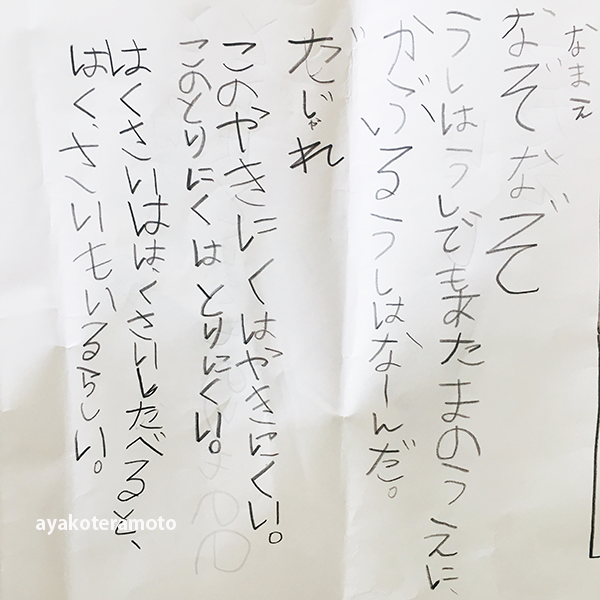 なまえ
なぞなぞ
うしはうしでもあたまのうえに、
かぶるうしはなーんだ。
だじゃれ
このやきにくはやきにくい。
このとりにくはとりにくい。
はくさいはは、くさいしたべると、
はく、さいもいるらしい。
ayakoteramoto